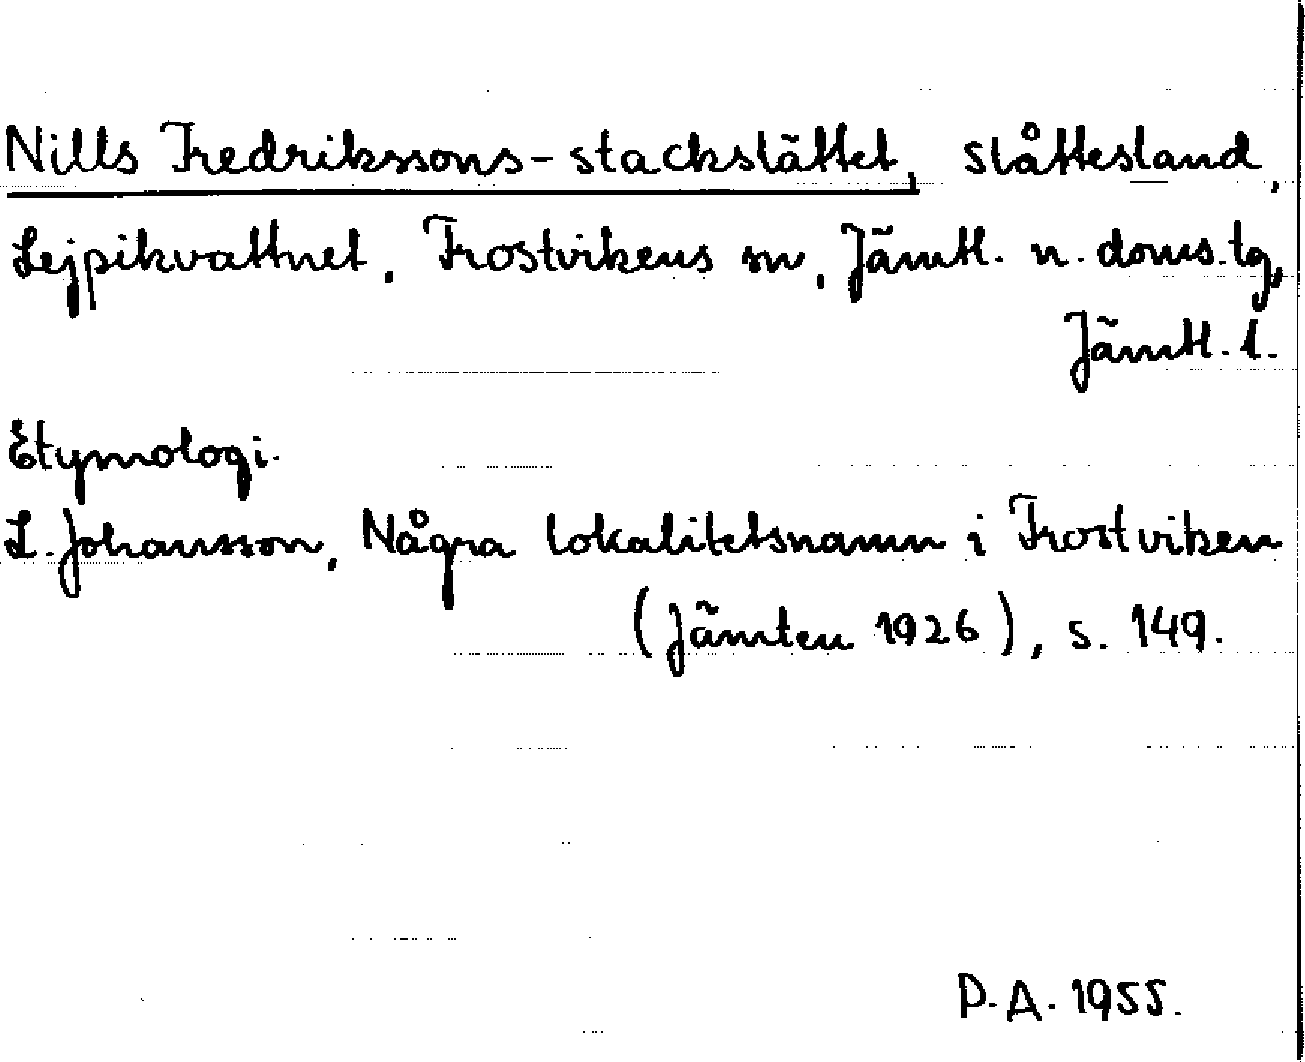 Nills Fredrikssons-stackslättet, slåttesland,
Lejpikvattnet, Frostvikens sn, Jämtl. n. doms. tg,
Jämtl. l.
Etymologi.
L. Johansson, Några lokalitetsnamn i Frostviken
(Jämten 1926), s. 149.
P.A. 1955.